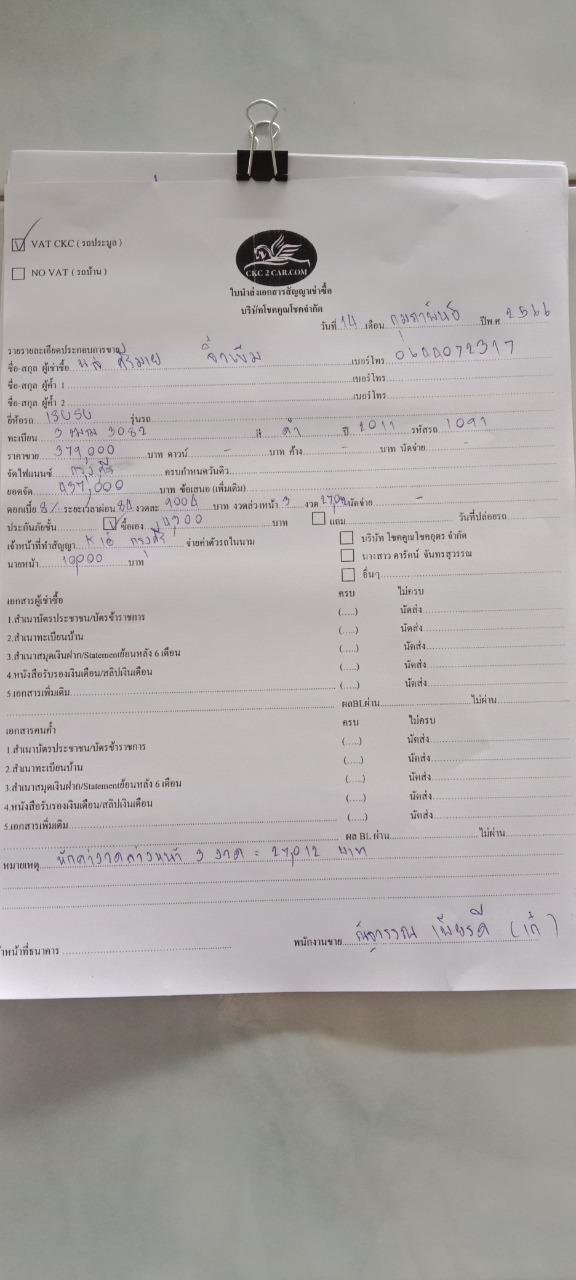 VAT CKC ( รถประมูล )
NO VAT ( รถบ้าน )
CKC 2 CAR.COM
ใบนำส่งเอกสารสัญญาเช่าซื้อ
บริษัทโชคคูณโชคจำกัด
วันที่ 14 เดือน กุมภาพันธ์ ปีพ.ศ. 2566
รายรายละเอียดประกอบการขาย
ชื่อ-สกุล ผู้เช่าซื้อ เบอร์โทร
ชื่อ-สกุล ผู้ค้ำ 1 เบอร์โทร
ชื่อ-สกุล ผู้ค้ำ 2 เบอร์โทร
ยี่ห้อรถ ISUSU รุ่นรถ
ทะเบียน 3082 สี ดำ ปี 2011 รหัสรถ 1091
ราคาขาย 379,000 บาท ดาวน์ - บาท ค้าง - บาท นัดจ่าย
จัดไฟแนนซ์ กรุงศรี ครบกำหนดวันดิว
ยอดจัด 437,000 บาท ข้อเสนอ (เพิ่มเติม)
ดอกเบี้ย 8% ระยะเวลาผ่อน 84 งวดละ 9004 บาท งวดล่วงหน้า 3 งวด นัดจ่าย -
ประกันภัยชั้น ซื้อเอง บาท แถม วันที่ปล่อยรถ
เจ้าหน้าที่ทำสัญญา กรุงศรี จ่ายค่าตัวรถในนาม บริษัท โชคคูณโชคอุดร จำกัด
นายหน้า 10,000 บาท นางสาว ดารัตน์ จันทรสุวรรณ
อื่นๆ
เอกสารผู้เช่าซื้อ ครบ ไม่ครบ
1.สำเนาบัตรประชาชน/บัตรข้าราชการ (.....) นัดส่ง
2.สำเนาทะเบียนบ้าน (.....) นัดส่ง
3.สำเนาสมุดเงินฝาก/Statementย้อนหลัง 6 เดือน (.....) นัดส่ง
4.หนังสือรับรองเงินเดือน/สลิปเงินเดือน (.....) นัดส่ง
5.เอกสารเพิ่มเติม (.....) นัดส่ง
ผลBLผ่าน ไม่ผ่าน
เอกสารคนค้ำ ครบ ไม่ครบ
1.สำเนาบัตรประชาชน/บัตรข้าราชการ (.....) นัดส่ง
2.สำเนาทะเบียนบ้าน (.....) นัดส่ง
3.สำเนาสมุดเงินฝาก/Statementย้อนหลัง 6 เดือน (.....) นัดส่ง
4.หนังสือรับรองเงินเดือน/สลิปเงินเดือน (.....) นัดส่ง
5.เอกสารเพิ่มเติม (.....) นัดส่ง
ผล BL ผ่าน ไม่ผ่าน
หมายเหตุ หักค่างวดล่วงหน้า 3 งวด = 27,012 บาท
หน้าที่ธนาคาร พนักงานขาย